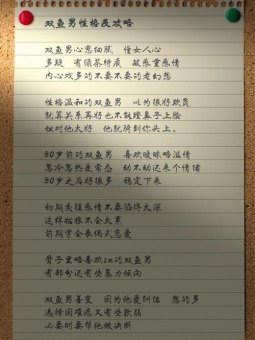 双鱼男性格及攻略
双鱼男心思细腻 懂女人心
多疑 有绿茶特质 敏感重感情
内心戏多的不要不要的老幻想
性格温和的双鱼男 以为很好欺负
就算关系再好也不能蹬鼻子上脸
但对他太好 他就骑到你头上。
30岁前的双鱼男 喜欢暧昧略滥情
忽冷忽热是常态 动不动还来个情绪
30岁之后好很多 稳定下来
初期交往感情不要陷得太深
这样始终不会太累
前期学会丧偶式恋爱
骨子里略喜欢sm的双鱼男
有部分还有些暴力倾向
双鱼男善变 因为他爱纠结 想的多
选择困难症又有些软弱
必要时要帮他做决断